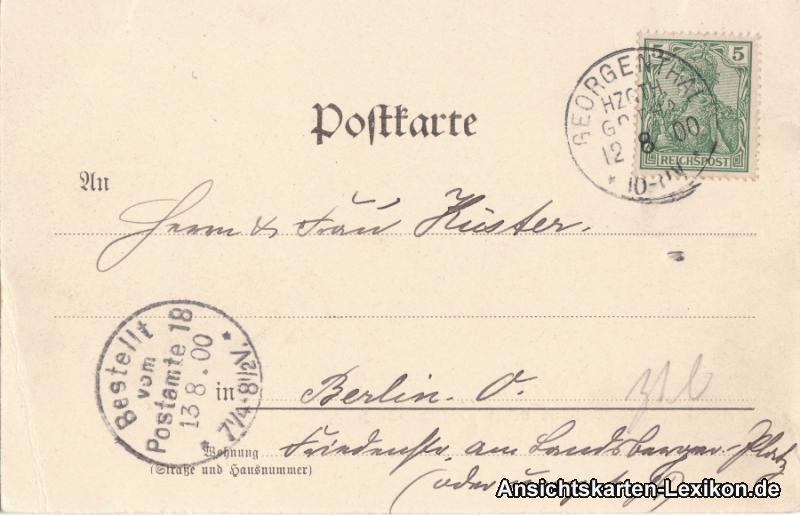 5 5
REICHSPOST
GEORGENTHAL
HZGTH.
12 8 00
* 10-11N. *
Postkarte
An
Herrn & Frau Küster.
Bestellt
vom
Postamte 18
13 8.00
* 7¼-8½V. *
in Berlin. O.
Wohnung Friedenstr. am Landsberger-Platz
(Straße und Hausnummer)
(oder
Ansichtskarten-Lexikon.de